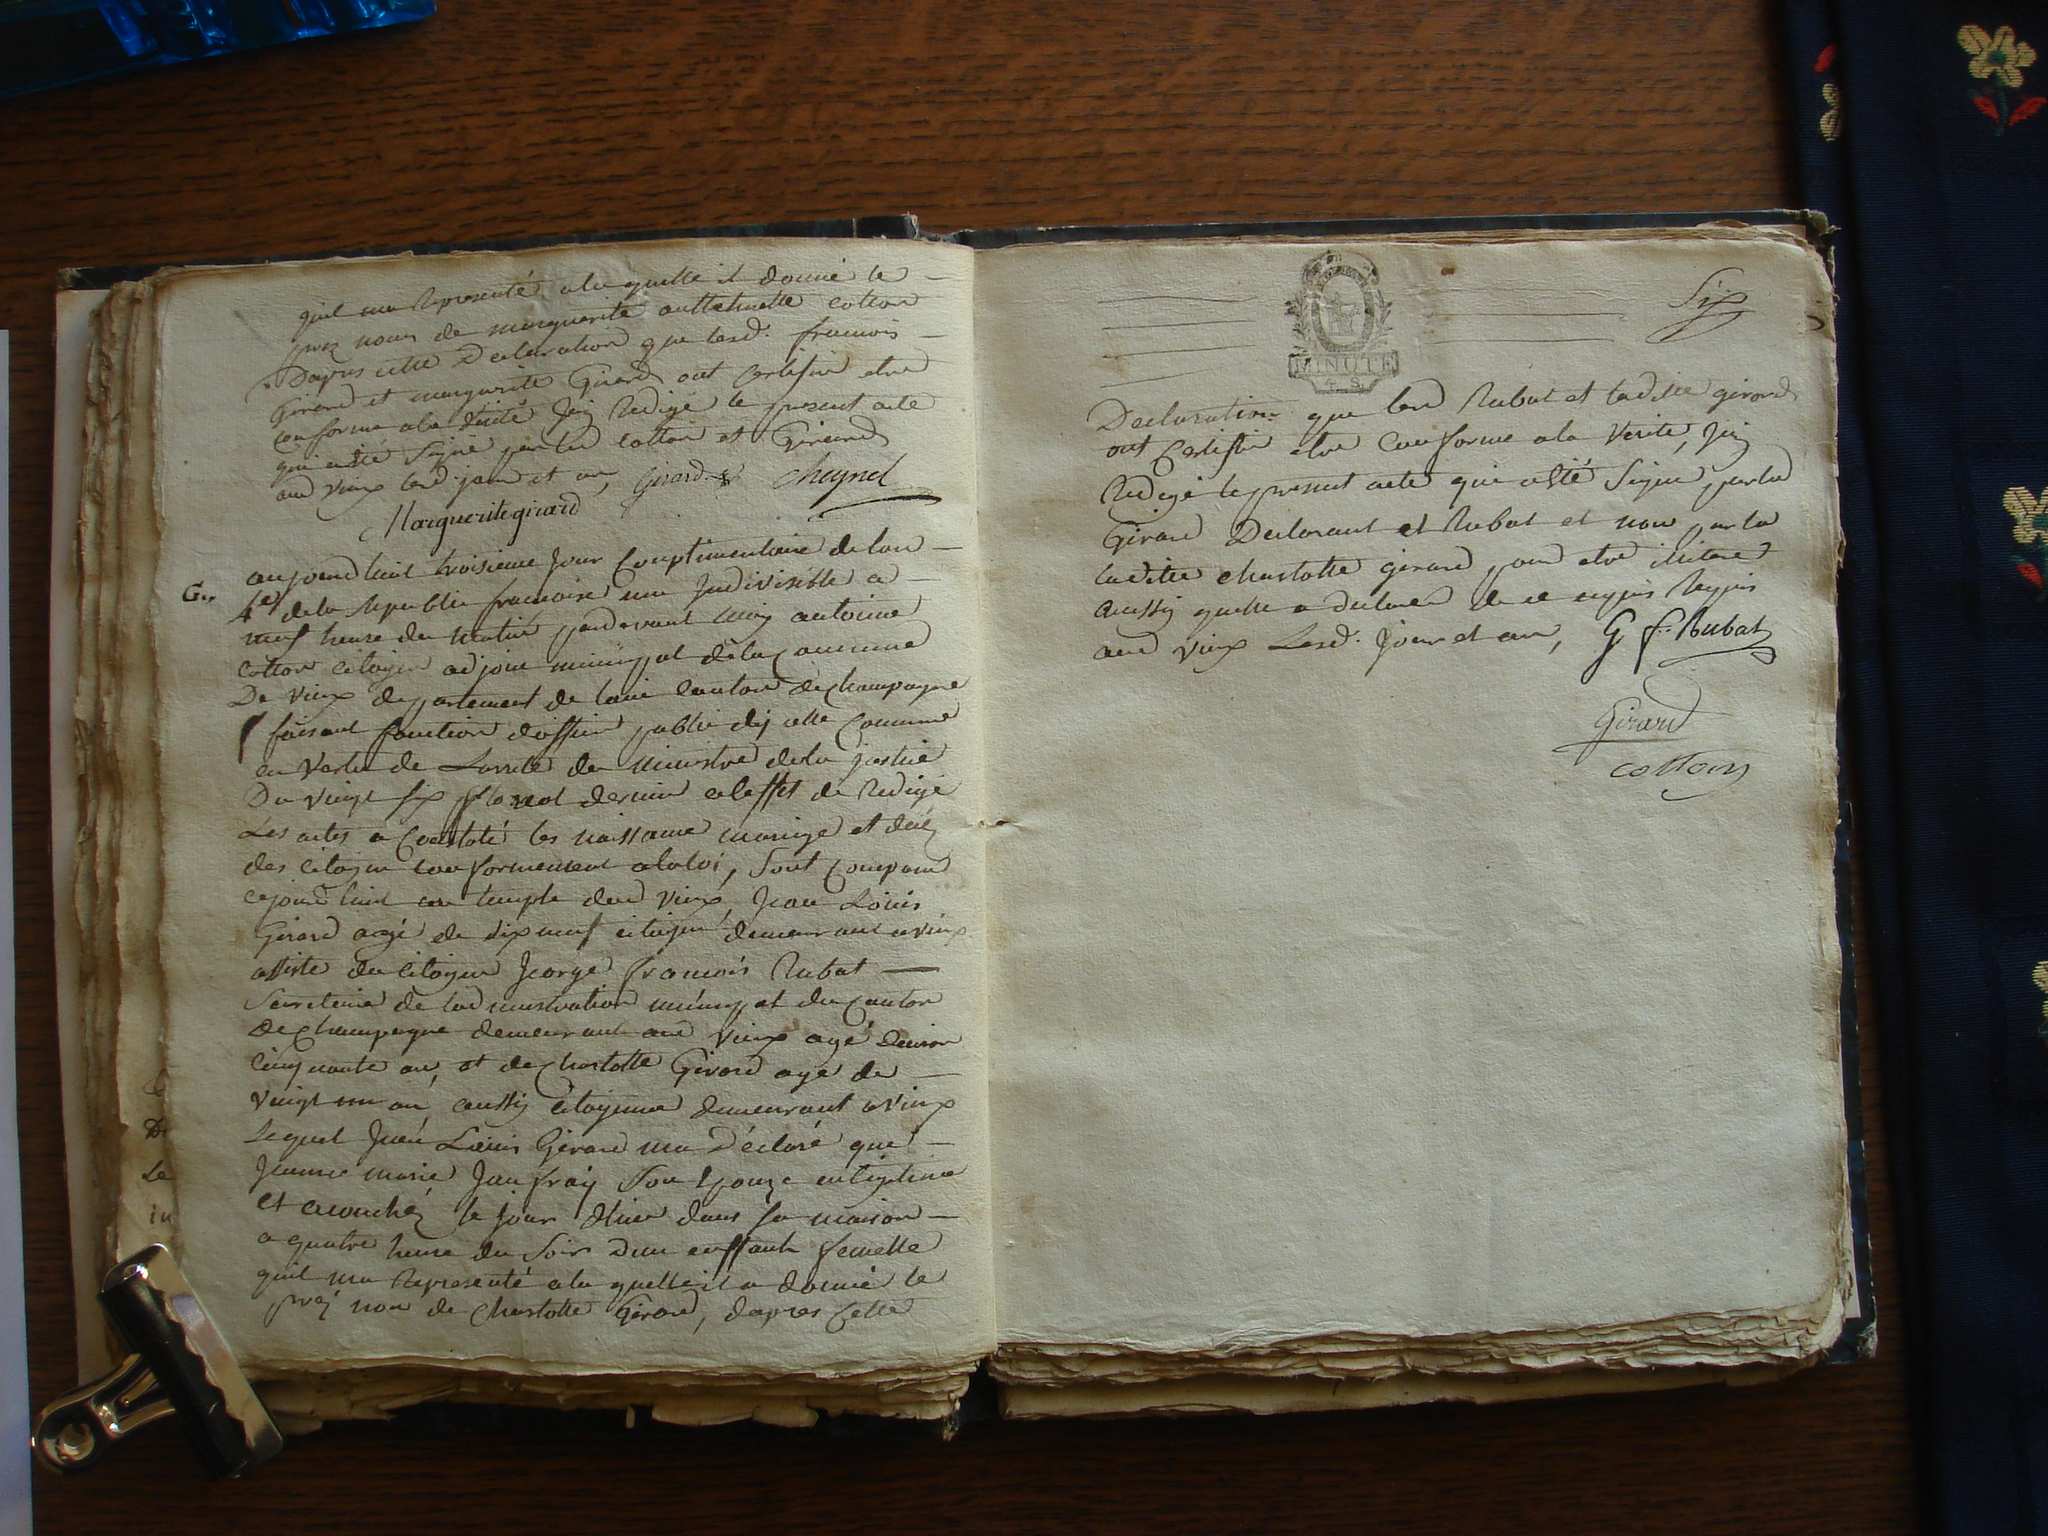 quil ma Representé a la quelle il donné le
pres nom de marguerite cotton
Dapres cette Declaration que lesd. francois
Girard et marguerite Girard ont Certifier etre
conforme a la Verité Jay Redigé le present acte
qui a été Signé par led cotton et Girard
aud vieux lesd. jour et an, Girard cheynel
Marguerite girard
G..
aujourd huit troisieme Jour Complimentaire de lan
4e de la Republic francoise une Indivisible a
neuf heure du matin pardevant moy antoine
cotton citoyen adjoin municipal de la Commune
De vieux departement de lain Canton de Champagne
faisant fonction doffier public dj cette Commune
en Vertu de Larreté du ministre de la justice
Du vingt six floreal dernier a leffet de Redigé
Les actes a Constaté les naissance mariage et deces
des citoyen conformement a la loi, Sont Comparu
cejourd huit au temple dud vieux, Jean Louis
Girard agé de dix neuf citoyen demeurant a vieux
assisté du citoyen Jeorge francois Rubat
Secretaire de ladministration municipal du Canton
de Champagne demeurant aud vieux agé denviron
Cinquante an, et de Charlotte Girard agé de
vingt un an, aussy citoyenne demeurant a vieux
Lequel Jean Louis Girard ma Déclaré que
Jeanne marie Jaufray Son Epouze
et acouchéz le jour dhier dans sa maison
a quatre heure du Soir dun enffant femelle
quil ma Representé a la quelle il a donné le
prez nom de Charlotte Girard, dapres Cette
Six
MINUTE
4. S.
Declaration que led Rubat et ladite girard
ont Certifier etre Conforme a la Verité, Jay
Redigé le present acte qui a été Signé par led
Girard Declarant et Rubat et non par la
ladite Charlotte girard pour etre iliteré
aussy quelle a declaréz de ce enquis Requis
aud vieux Lesd. Jour et an, G f.. Rubat
Girard
cotton